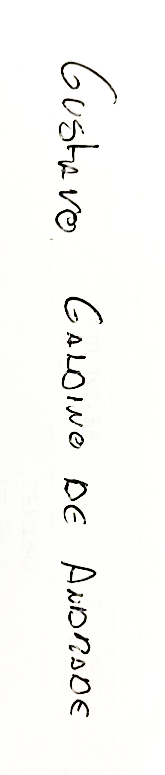 Gustavo Galdino de Andrade